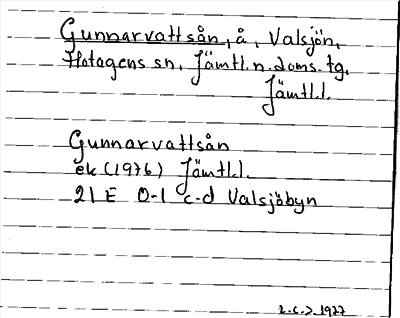 Gunnarvattsån, å, Valsjön,
Hotagens sn, Jämtl.n.doms.tg,
Jämtl.l.
Gunnarvattsån
ek (1976) Jämtl.l.
21 E 0-1 c-d Valsjöbyn
1977